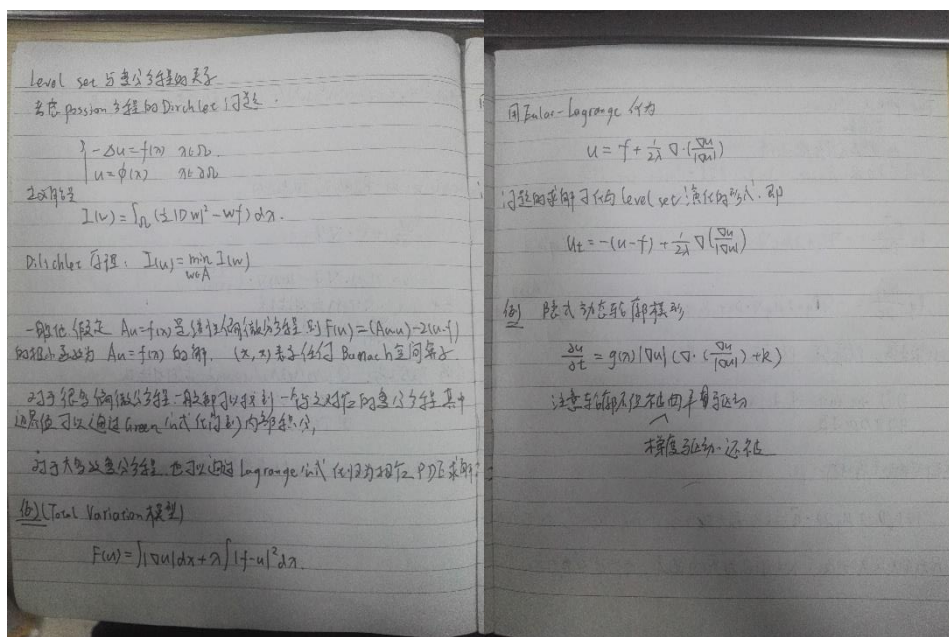 Level set 与变分方程的关系
考虑 possion 方程的 Dirchlet 问题.
{ -Δu = f(x)  x∈Ω.
u = φ(x)  x∈∂Ω
I(w) = ∫_Ω (½|Dw|² - wf) dx.
Dilichlet 原理: I(u) = min_{w∈A} I(w)
一般地 假定 Au=f(x) 是线性偏微分方程 则 F(u) = (Au·u) - 2(u·f)
的极小函数为 Au=f(x) 的解. (x,x) 表示任何 Banach 空间算子
对于很多偏微分方程一般都可以找到一个与之对应的变分方程 其中
边界值可以通过 Green 公式化简到内部积分,
对于大多数变分方程 也可以通过 Lagrange 公式 化归为相应 PDE 求解.
例) (Total Variation 模型)
F(u) = ∫|∇u|dx + λ∫|f-u|²dx.
用 Eular-Lagrange 化为
u = f + 1/2λ ∇·(∇u/|∇u|)
问题的求解可化为 level set 演化的形式. 即
u_t = -(u-f) + 1/2λ ∇(∇u/|∇u|)
例) 隐式动态轮廓模形
∂u/∂t = g(x)|∇u|(∇·(∇u/|∇u|)+k)
注意轮廓不但被曲率驱动
梯度驱动.还被